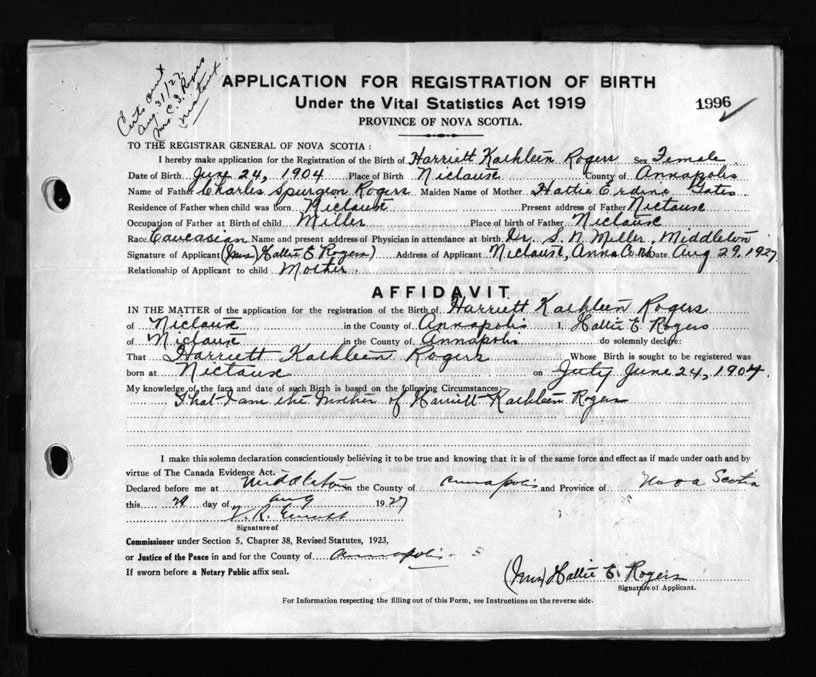 Certs sent
Aug 31/27
Mrs C. S. Rogers
Nictaux
APPLICATION FOR REGISTRATION OF BIRTH
Under the Vital Statistics Act 1919
1996
PROVINCE OF NOVA SCOTIA.
TO THE REGISTRAR GENERAL OF NOVA SCOTIA :
I hereby make application for the Registration of the Birth of Harriett Kathleen Rogers Sex Female
Date of Birth June 24, 1904 Place of Birth Nictaux County of Annapolis
Name of Father Charles Spurgeon Rogers Maiden Name of Mother Hattie Gates
Residence of Father when child was born Nictaux Present address of Father Nictaux
Occupation of Father at Birth of child Miller Place of birth of Father Nictaux
Race Caucasian Name and present address of Physician in attendance at birth Dr. S. N. Miller, Middleton
Signature of Applicant (Mrs) Hattie E Rogers) Address of Applicant Nictaux, Anna Co. NS Date Aug 29, 1927.
Relationship of Applicant to child Mother
AFFIDAVIT
IN THE MATTER of the application for the registration of the Birth of Harriett Kathleen Rogers
of Nictaux in the County of Annapolis I, Hattie E Rogers
of Nictaux in the County of Annapolis do solemnly declare:
That Harriett Kathleen Rogers Whose Birth is sought to be registered was
born at Nictaux on July June 24, 1904.
My knowledge of the fact and date of such Birth is based on the following Circumstances:
That I am the Mother of Harriett Kathleen Rogers
I make this solemn declaration conscientiously believing it to be true and knowing that it is of the same force and effect as if made under oath and by
virtue of The Canada Evidence Act.
Declared before me at Middleton in the County of Annapolis and Province of Nova Scotia
this 29 day of Aug 1927
Signature of
Commissioner under Section 5, Chapter 38, Revised Statutes, 1923,
or Justice of the Peace in and for the County of Annapolis
If sworn before a Notary Public affix seal.
(Mrs) Hattie E. Rogers
Signature of Applicant.
For Information respecting the filling out of this Form, see Instructions on the reverse side.